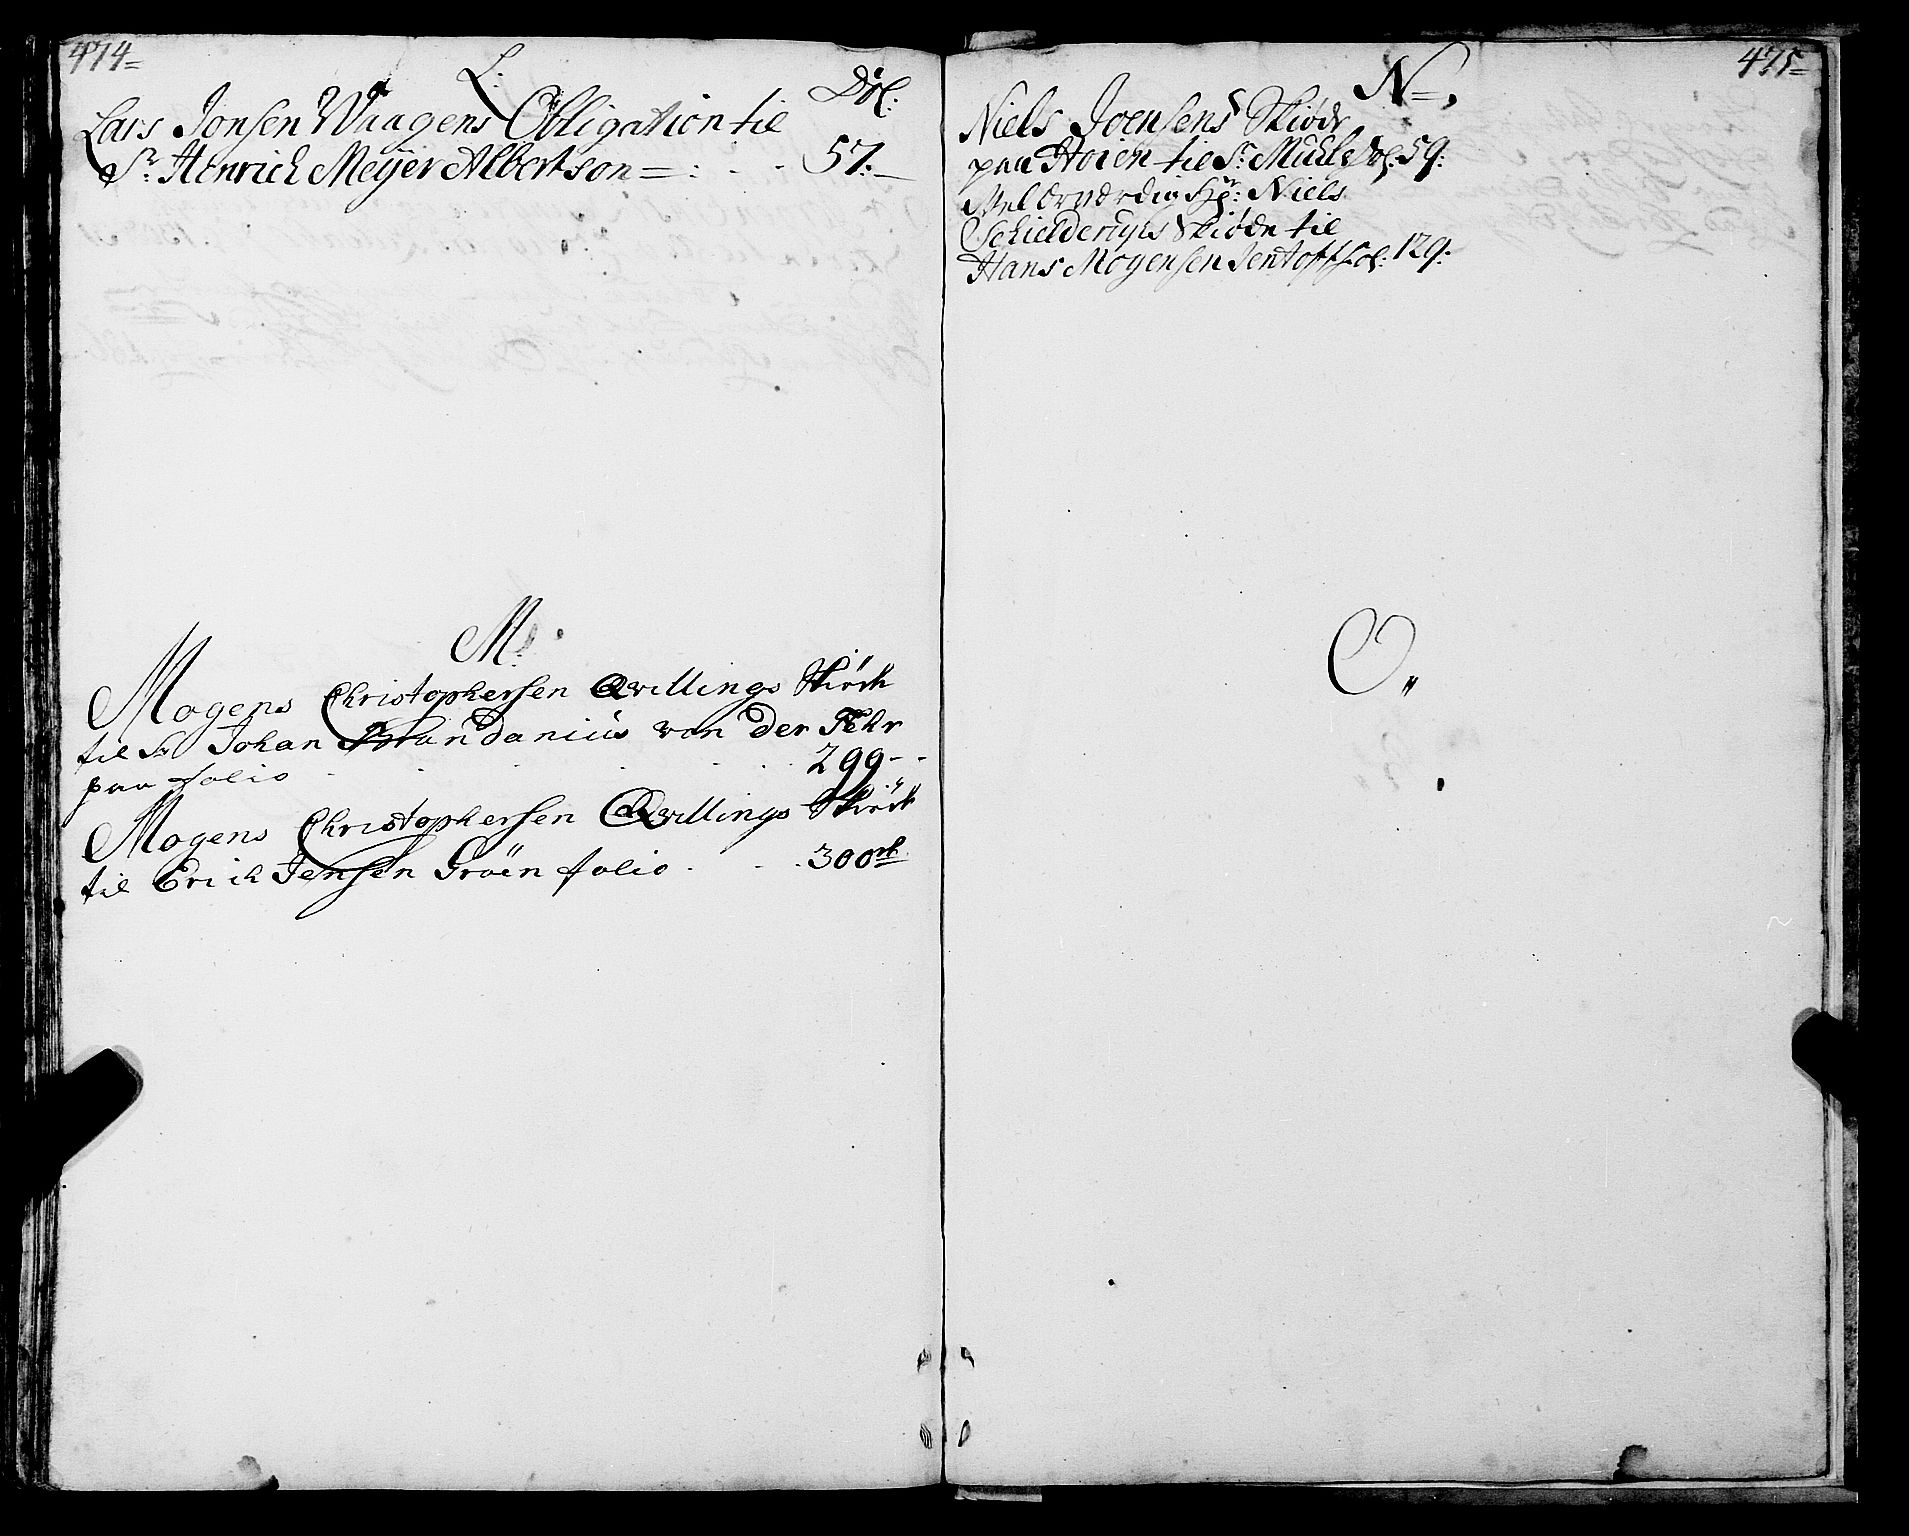 474=
L:
Fol:
Lars Jonsen Waagens Obligation til
Sr. Henrich Meÿer Albertson =: - - 57.
M:
Mogens Christophersen Qvillings Skiöte
til Sr Johan Brandanius von der Fehr
paa folio - - - - 299 - -
Mogens Christophersen Qvillings Skiöte
til Erich Jensen Gröen folio - - - 300
475=
N=,
Niels Joensens Skiøde
paa Hoien til Sr. Muhle Fol: 59:
Velærværdig Hr: Niels
Schielderups Skiøde til
Hans Mogensen Jentoff fol: 129:
O„